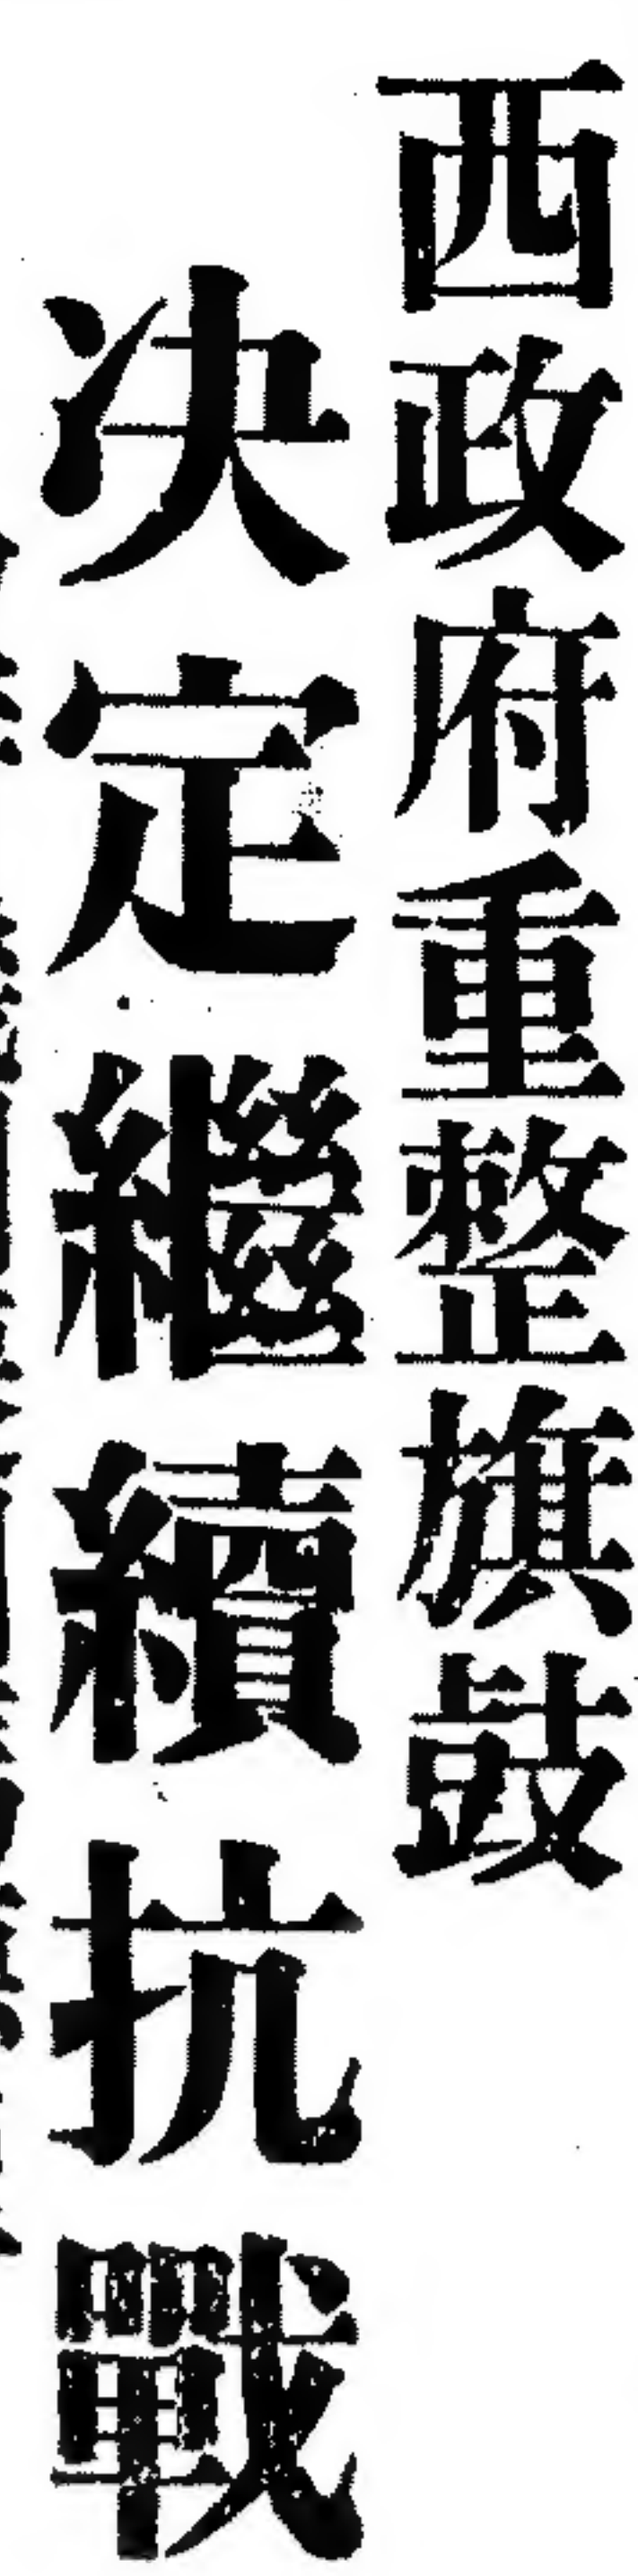 西政府重整旗鼓
决定繼續抗戰